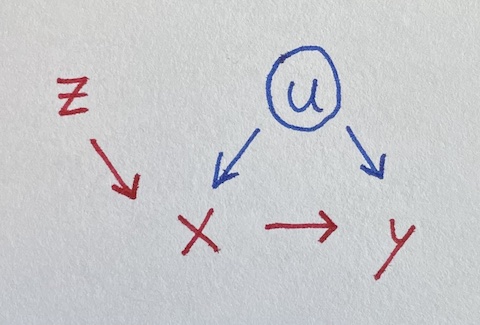 Z U
X y